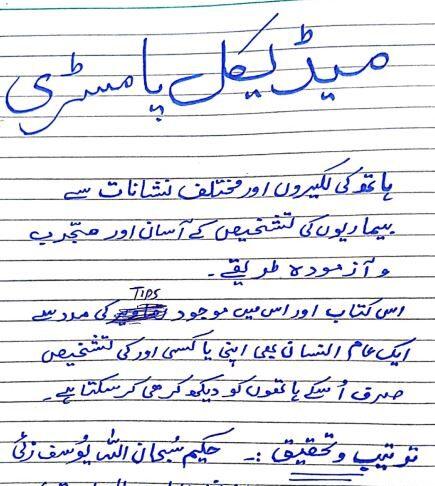 میڈیکل پامسٹری
ہاتھ کی لکیروں اور مختلف نشانات سے
بیماریوں کی تشخیص کے آسان اور مجرب
و آزمودہ طریقے۔
اس کتاب اور اس میں موجود TIPS کی مدد سے
ایک عام انسان بھی اپنی یا کسی اور کی تشخیص
صرف اُسکے ہاتھوں کو دیکھ کر ھی کر سکتا ہے۔
ترتیب و تحقیق :۔ حکیم سُبحان اللہ یُوسف زئی